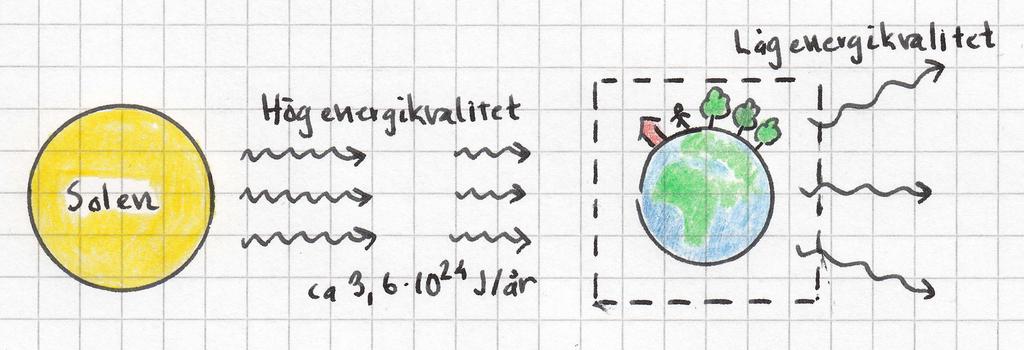 Låg energikvalitet
Hög energikvalitet
Solen
ca 3,6·10²⁴ J/år